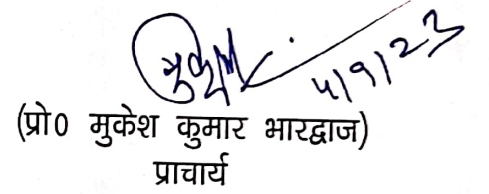 मुकेश 4/9/23
(प्रो0 मुकेश कुमार भारद्वाज)
प्राचार्य